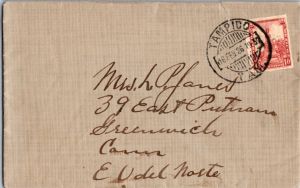 TAMPICO
TAM
Mrs L P Jones
39 East Putnam
Greenwich
Conn
E U del Norte